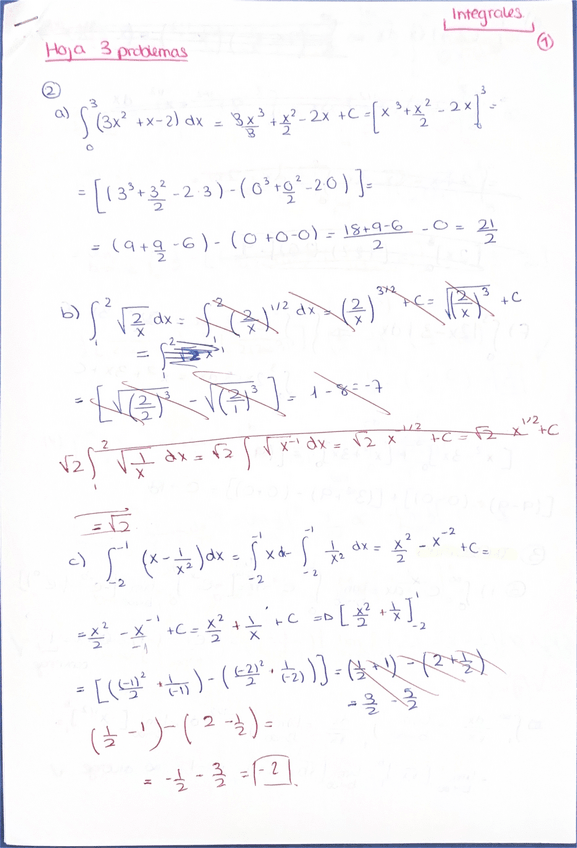 Integrales
①
Hoja 3 problemas
②
a) ∫₀³ (3x² + x - 2) dx = 3x³/3 + x²/2 - 2x + C = [x³ + x²/2 - 2x]₀³ =
= [(3³ + 3²/2 - 2·3) - (0³ + 0²/2 - 2·0)] =
= (9 + 9/2 - 6) - (0 + 0 - 0) = (18 + 9 - 6)/2 - 0 = 21/2
b) ∫₁² √(2/x) dx = ∫₁² (2/x)^(1/2) dx = (2/x)^(3/2) + C = √((2/x)³) + C
= [√((2/2)³) - √((2/1)³)] = 1 - 8 = -7
√2 ∫₁² √(1/x) dx = √2 ∫ √(x⁻¹) dx = √2 x^(1/2) + C = √2 x^(1/2) + C
= √2
c) ∫₋₂⁻¹ (x - 1/x²) dx = ∫₋₂⁻¹ xd - ∫₋₂⁻¹ 1/x² dx = x²/2 - x⁻² + C =
= x²/2 - x⁻¹/-1 + C = x²/2 + 1/x + C ⇒ [x²/2 + 1/x]₋₂¹
= [((-1)²/2 + 1/(-1)) - ((-2)²/2 + 1/(-2))] = (1/2 + 1) - (2 + 1/2)
= 3/2 - 5/2
(1/2 - 1) - (2 - 1/2) =
= -1/2 - 3/2 = -2